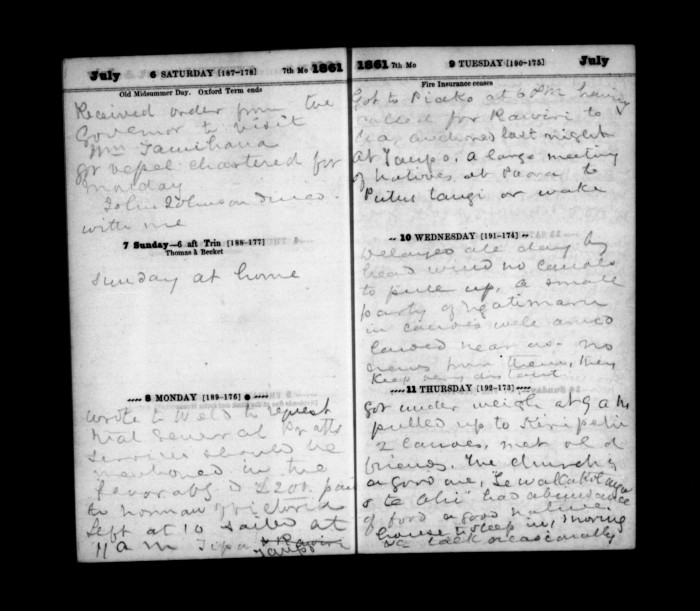 July 6 SATURDAY [187-178] 7th Mo 1861
Old Midsummer Day. Oxford Term ends
Received order from the
Governor to visit
Wm Tamihana
got vessel chartered for
Monday
John Johnson dined
with me
7 Sunday—6 aft Trin [188-177]
Thomas à Becket
Sunday at home
8 MONDAY [189-176]
wrote to Weld to request
that General Pratts
services should be
mentioned in the
£200 paid
to Norman
left at 10 sailed at
11 am
Taupo
1861 7th Mo 9 TUESDAY [190-175] July
Fire Insurance ceases
Got to Piako at 6 PM having
called for Rawiri to
anchored last night
at Taupo. A large meeting
of natives at to
tangi or wake
10 WEDNESDAY [191-174]
Delayed all day by
head wind no canoes
to pull up, a small
party of Ngatimaru
in canoes well armed
landed near us. no
news from them, they
keep very distant
11 THURSDAY [192-173]
got under weigh at 9 am
pulled up to
2 canoes, met old
friends. The church is
a good one,
has abundance
of food a good native
house to sleep in, moving
talk occasionally